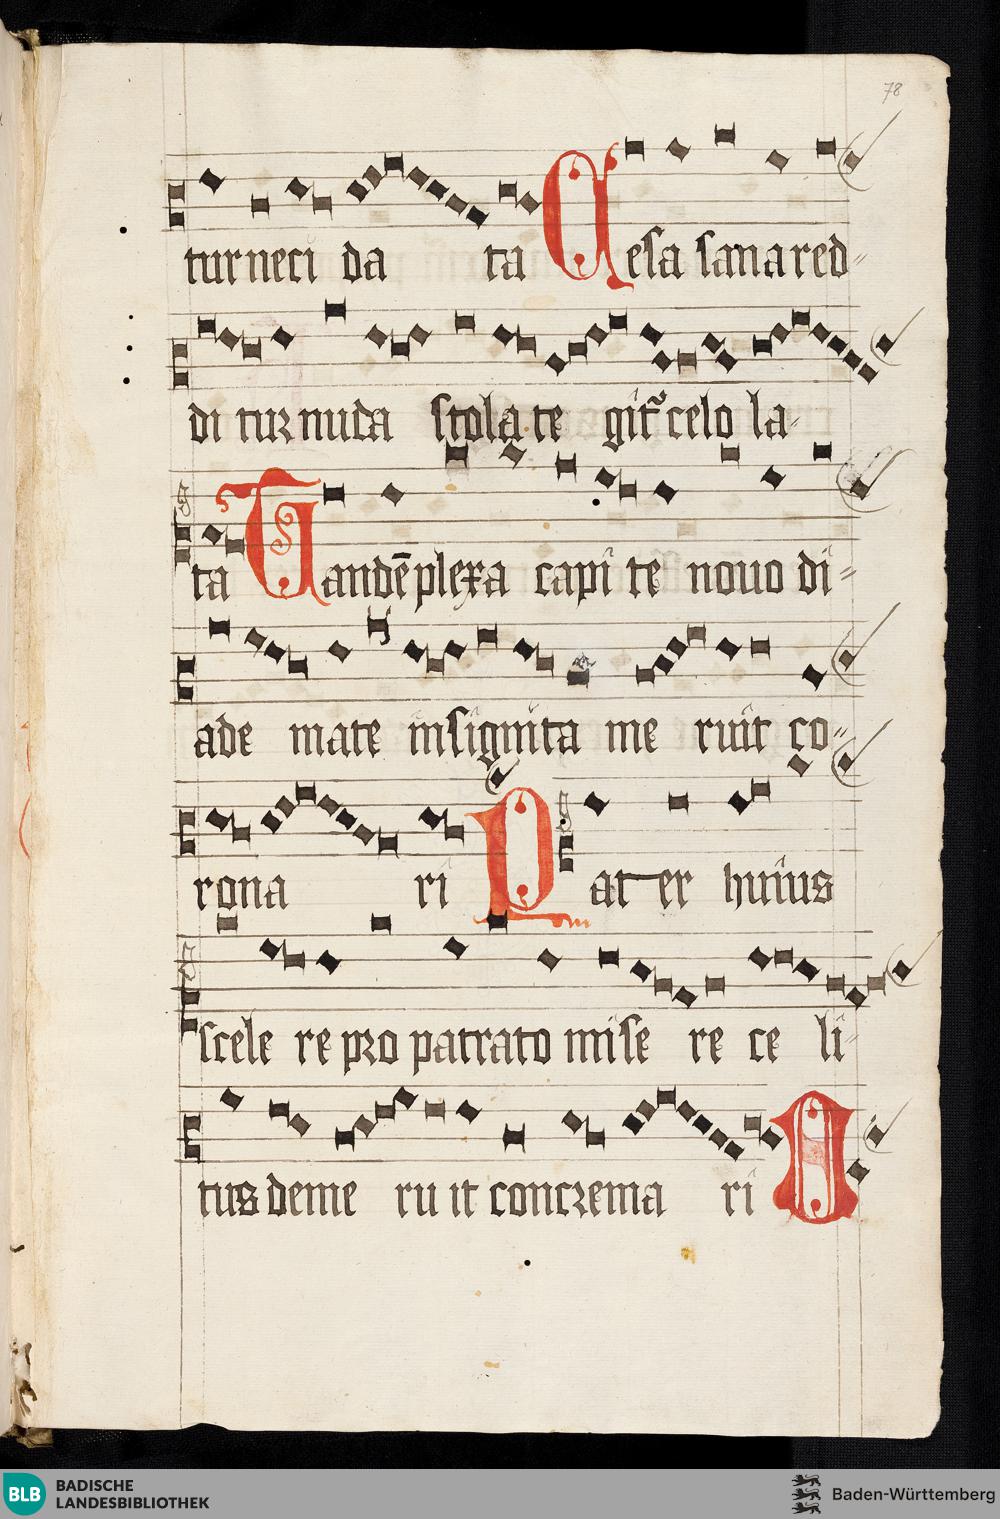 78
tur neci da ta Cesa sana red⸗
di tur nuda stola te git᷑ celo la⸗
ta Tandē plexa capi te nouo di⸗
ade mate insignita me ruit co⸗
rona ri Pater huius
scele re pro patrato mise re ce li⸗
tus deme ru it concrema ri O
BLB BADISCHE
LANDESBIBLIOTHEK
Baden-Württemberg